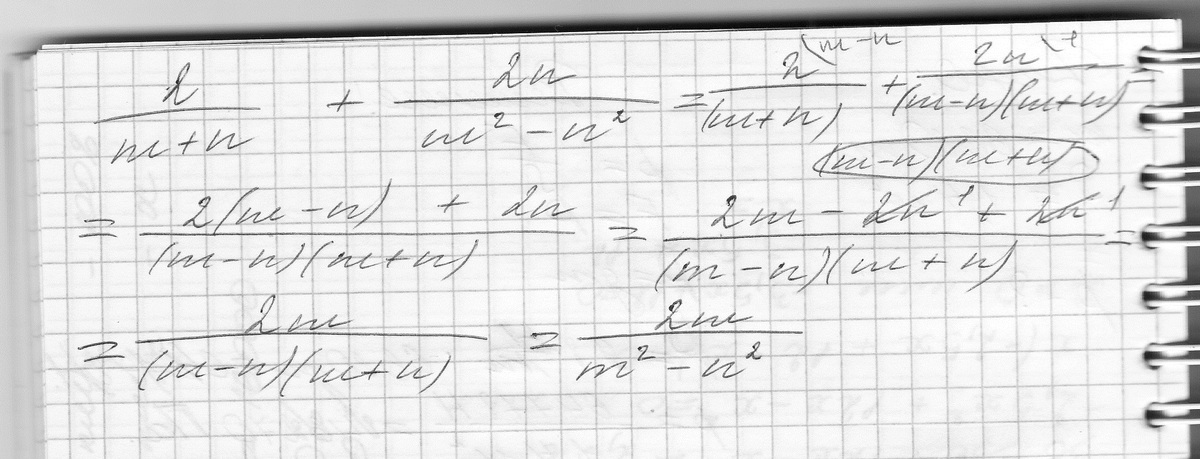 2/(m+n) + 2n/(m²-n²) = 2\m-n/(m+n) + 2n\1/(m-n)(m+n) =
(m-n)(m+n)
= (2(m-n) + 2n)/(m-n)(m+n) = (2m - 2n 1 + 2n 1)/(m-n)(m+n) =
= 2m/(m-n)(m+n) = 2m/(m²-n²)